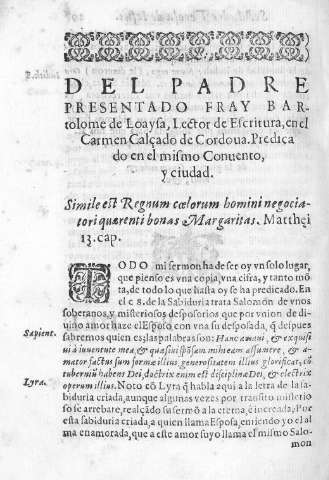 DEL PADRE
PRESENTADO FRAY BAR-
tolome de Loaysa, Lector de Escritura, en el
Carmen Calçado de Cordoua. Predica
do en el mismo Conuento,
y ciudad.
Simile est Regnum cœlorum homini negocia-
tori quærenti bonas Margaritas. Matthei
13. cap.
TODO mi sermon ha de ser oy vn solo lugar,
que pienso es vna copia, vna cifra, y tanto mō-
ta, de todo lo que hasta oy se ha predicado. En
el c 8. de la Sabiduria trata Salomon de vnos
soberanos, y misteriosos desposorios que por vnion de di-
uino amor haze el Esposo con vna su desposada, q̃ despues
sabremos quien es; las palabras son: Hanc amaui, & exquisi
Sapient.
ui à iuuentute mea, & quæsiui spōsam mihi eam assumere, & a-
mator factus sum formæ illius generositatem illius glorificat, cō
tuberniũ habens Dei, doctrix enim est disciplinæ Dei, & electrix
Lyra.
operum illius. Noto cō Lyra q̃ habla aqui a la letra de la sa-
biduria criada, aunque algunas vezes por transito misterio
so se arrebate, realçãdo su sermō a la eterna, è increada, Por
esta sabiduria criada, a quien llama Esposa, entiendo yo el al
ma enamorada, que a este amor suyo llama el mismo Salo-
mon